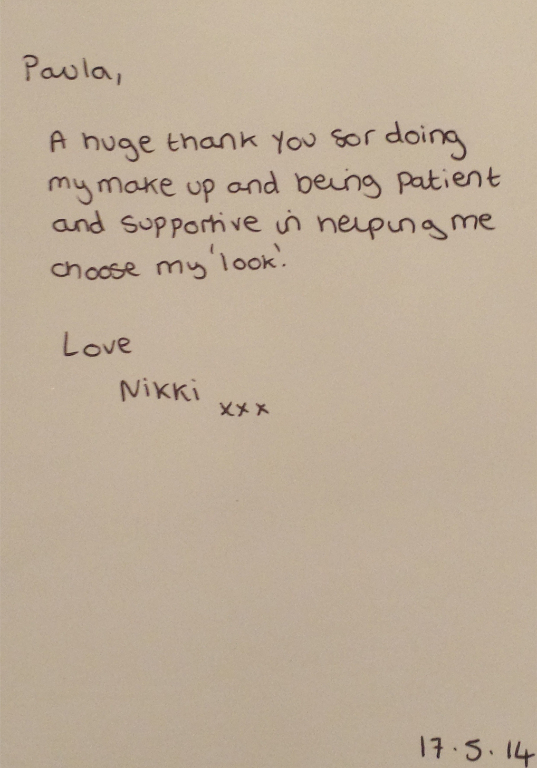 Paula,
A huge thank you for doing
my make up and being patient
and supportive in helping me
choose my 'look'.
Love
Nikki xxx
17.5.14